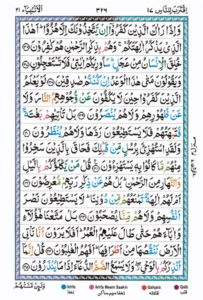 اِقْتَرَبَ لِلنَّاسِ ١٧ ٣٢٦ اَلْاَنْبِيَآء ٢١
وَاِذَا رَاٰكَ الَّذِيْنَ كَفَرُوْٓا اِنْ يَّتَّخِذُوْنَكَ اِلَّا هُزُوًا ؕ اَهٰذَا
الَّذِيْ يَذْكُرُ اٰلِهَتَكُمْ ۚ وَهُمْ بِذِكْرِ الرَّحْمٰنِ هُمْ كٰفِرُوْنَ
خُلِقَ الْاِنْسَانُ مِنْ عَجَلٍ ؕ سَاُورِيْكُمْ اٰيٰتِيْ فَلَا تَسْتَعْجِلُوْنِ
وَيَقُوْلُوْنَ مَتٰى هٰذَا الْوَعْدُ اِنْ كُنْتُمْ صٰدِقِيْنَ لَوْ يَعْلَمُ
الَّذِيْنَ كَفَرُوْا حِيْنَ لَا يَكُفُّوْنَ عَنْ وُّجُوْهِهِمُ النَّارَ وَلَا
عَنْ ظُهُوْرِهِمْ وَلَا هُمْ يُنْصَرُوْنَ بَلْ تَاْتِيْهِمْ بَغْتَةً
فَتَبْهَتُهُمْ فَلَا يَسْتَطِيْعُوْنَ رَدَّهَا وَلَا هُمْ يُنْظَرُوْنَ وَلَقَدِ
اسْتُهْزِئَ بِرُسُلٍ مِّنْ قَبْلِكَ فَحَاقَ بِالَّذِيْنَ سَخِرُوْا
مِنْهُمْ مَّا كَانُوْا بِهٖ يَسْتَهْزِءُوْنَ قُلْ مَنْ يَّكْلَؤُكُمْ بِالَّيْلِ
وَالنَّهَارِ مِنَ الرَّحْمٰنِ ؕ بَلْ هُمْ عَنْ ذِكْرِ رَبِّهِمْ مُّعْرِضُوْنَ اَمْ
لَهُمْ اٰلِهَةٌ تَمْنَعُهُمْ مِّنْ دُوْنِنَا ؕ لَا يَسْتَطِيْعُوْنَ نَصْرَ
اَنْفُسِهِمْ وَلَا هُمْ مِّنَّا يُصْحَبُوْنَ بَلْ مَتَّعْنَا هٰٓؤُلَآءِ
وَاٰبَآءَهُمْ حَتّٰى طَالَ عَلَيْهِمُ الْعُمُرُ ؕ اَفَلَا يَرَوْنَ اَنَّا نَاْتِي
الْاَرْضَ نَنْقُصُهَا مِنْ اَطْرَافِهَا ؕ اَفَهُمُ الْغٰلِبُوْنَ قُلْ اِنَّمَآ
اُنْذِرُكُمْ بِالْوَحْيِ ۖ وَلَا يَسْمَعُ الصُّمُّ الدُّعَآءَ اِذَا مَا يُنْذَرُوْنَ
وَلَئِنْ مَّسَّتْهُمْ
Ikhfa Ikhfa Meem Saakin Qalqala